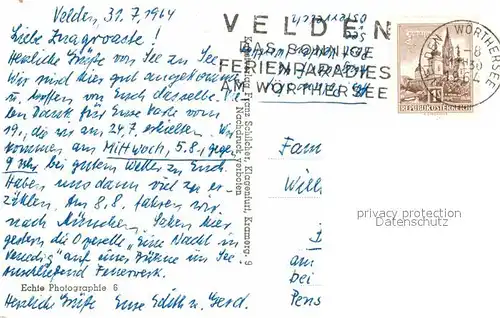 Velden, 31.7.1964
Liebe
Herzliche Grüße von See zu See
Wir sind hier gut angekommen
u. hoffen von Euch dasselbe. Vie-
len Dank für Eure Karte vom
19., die wir am 24.7. erhielten. Wir
kommen am Mittwoch, 5.8. gegen
9 Uhr bei gutem Wetter zu Euch.
Haben uns dann viel zu er-
zählen. Am 8.8. fahren wir
nach München. Sahen hier
gestern die Operette „Eine Nacht in
Venedig" auf einer Bühne im See
anschließend Feuerwerk.
Echte Photographie 6
Herzliche Grüße Eure Edith u. Gerd.
Franz Schilcher, Klagenfurt, Kramerg. 9
Nachdruck verboten
VELDEN
DAS SONNIGE
FERIENPARADIES
AM WÖRTHERSEE
VELDEN WÖRTHERSEE
1964
REPUBLIK ÖSTERREICH
Österreich
Fam
Will
am
bei
Pens
privacy protection
Datenschutz